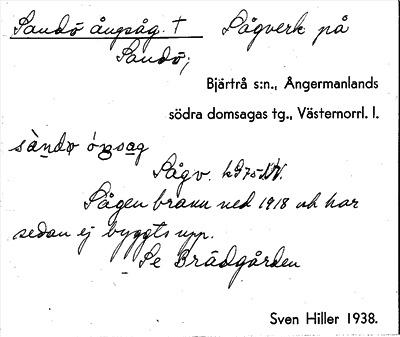 Sandö ångsåg. † Sågverk på
Sandö;
Bjärtrå s:n., Ångermanlands
södra domsagas tg., Västernorrl. l.
sàndø óŋsag
Sågv.
Sågen brann ned 1918 och har
sedan ej byggts upp.
Se Brädgården
Sven Hiller 1938.